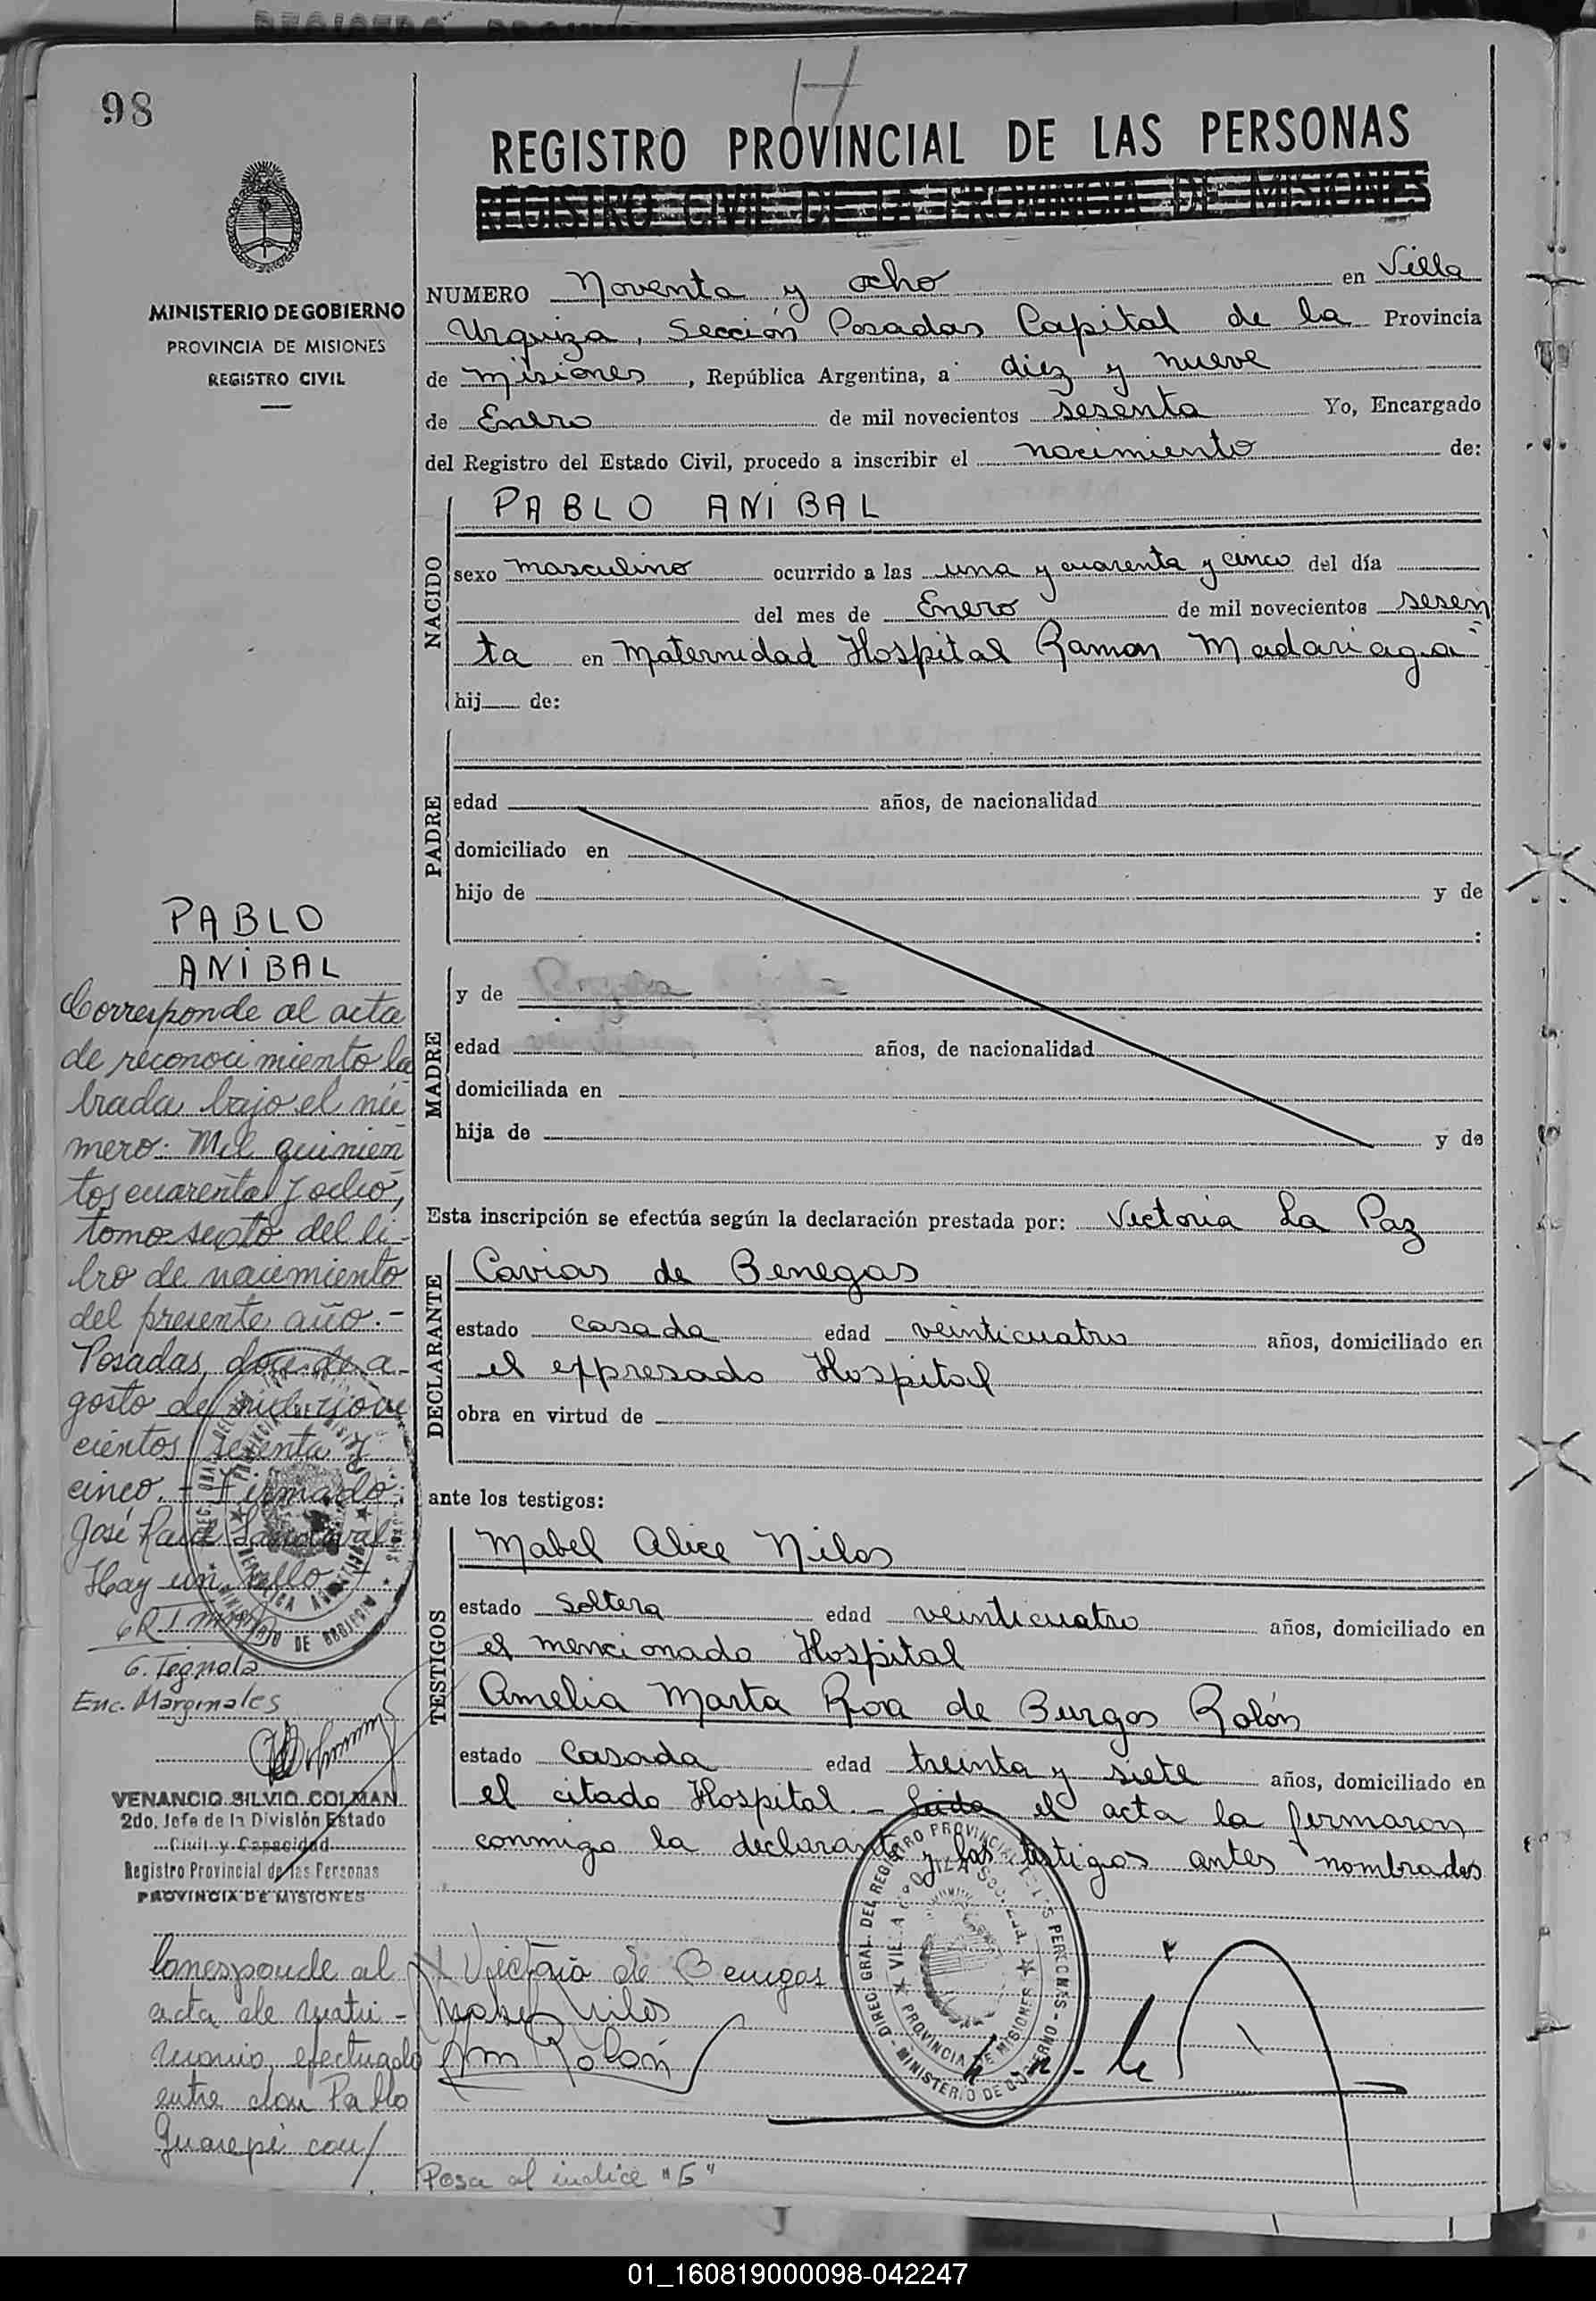 98
H
REGISTRO PROVINCIAL DE LAS PERSONAS
REGISTRO CIVIL DE LA PROVINCIA DE MISIONES
MINISTERIO DE GOBIERNO
PROVINCIA DE MISIONES
REGISTRO CIVIL
NUMERO Noventa y ocho en Villa
Urquiza, Sección Posadas Capital de la Provincia
de Misiones, República Argentina, a diez y nueve
de Enero de mil novecientos sesenta Yo, Encargado
del Registro del Estado Civil, procedo a inscribir el nacimiento de:
NACIDO
PABLO ANIBAL
sexo masculino ocurrido a las una y cuarenta y cinco del día
del mes de Enero de mil novecientos sesen
ta en Maternidad Hospital Ramon Madariaga
hij de:
PADRE
edad años, de nacionalidad
domiciliado en
hijo de y de
:
MADRE
y de
edad años, de nacionalidad
domiciliada en
hija de y de
Esta inscripción se efectúa según la declaración prestada por: Victoria La Paz
DECLARANTE
Cavias de Benegas
estado casada edad veinticuatro años, domiciliado en
el expresado Hospital
obra en virtud de
ante los testigos:
TESTIGOS
Mabel Alice Nilos
estado soltera edad veinticuatro años, domiciliado en
el mencionado Hospital
Amelia Marta Roa de Burgos Rolón
estado casada edad treinta y siete años, domiciliado en
el citado Hospital.- Leida el acta la firmaron
conmigo la declarante y las testigos antes nombradas
Victoria de Benegas
Mabel Nilos
Am Rolón
DIREC. GRAL. DEL REGISTRO PROVINCIAL DE LAS PERSONAS - MINISTERIO DE GOBIERNO -
PROVINCIA DE MISIONES
Pasa al indice "G"
PABLO
ANIBAL
Corresponde al acta
de reconocimiento la
brada bajo el nú
mero: Mil quinien
tos cuarenta y ocho,
tomo sexto del li-
bro de nacimiento
del presente año.-
Posadas, doce de a-
gosto de mil nove
cientos sesenta y
cinco.- Firmado:
José Raúl Sandoval
Hay un sello.-
G. Tognola
Enc. Marginales
VENANCIO SILVIO COLMAN
2do. Jefe de la División Estado
Civil y Capacidad
Registro Provincial de las Personas
PROVINCIA DE MISIONES
Corresponde al
acta de matri-
monio efectuado
entre don Pablo
Guarepi con/
01_160819000098-042247